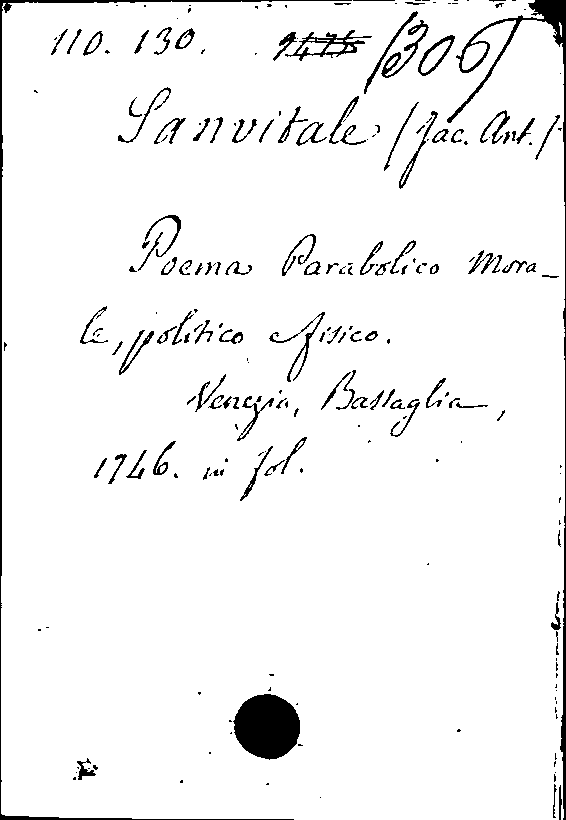 110. 130. 2475 (306)
Sanvitale (Jac. Ant.)
Poema Parabolico Mora-
le, politico e fisico.
Venezia, Battaglia,
1746. in fol.